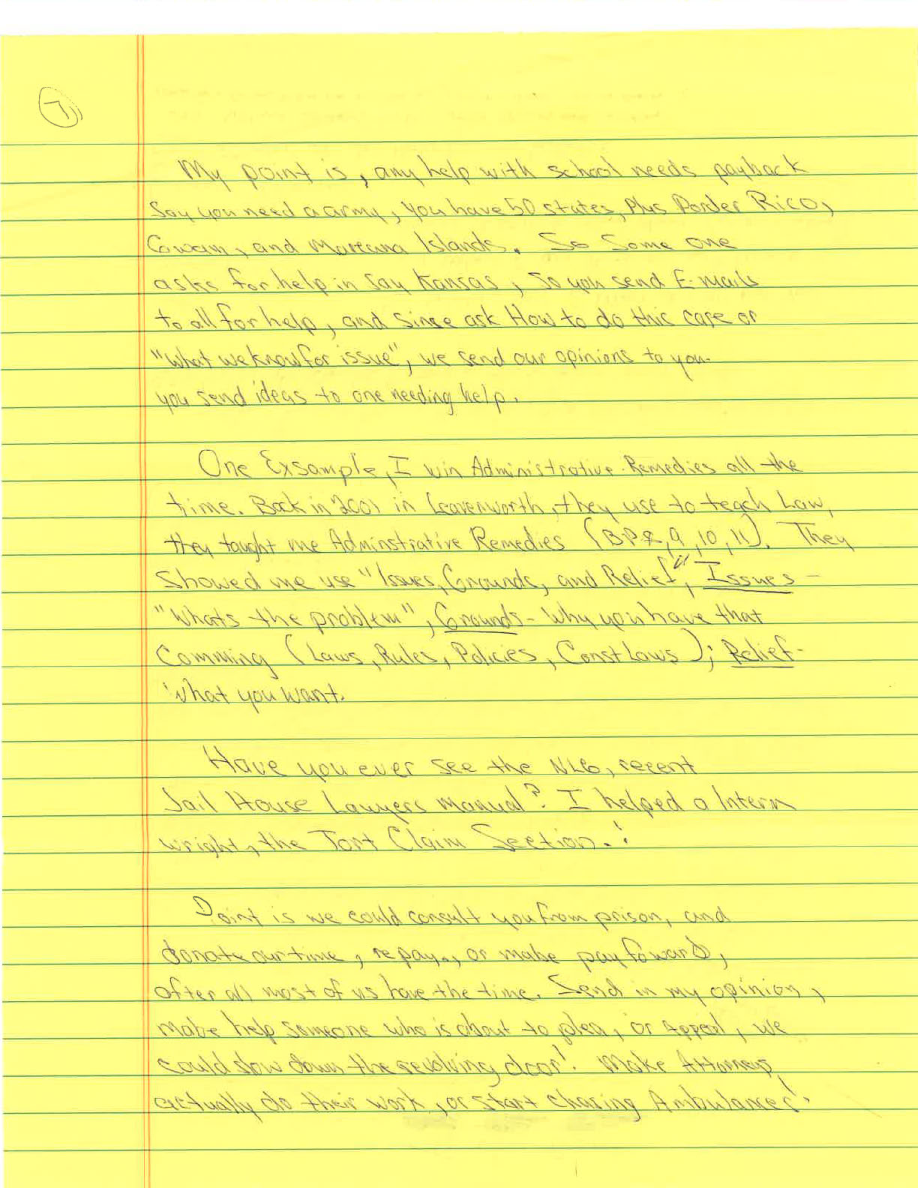 7
My point is, any help with school needs payback
Say you need a army, you have 50 states, Plus Porder Rico,
Gowam, and Mareana Islands. So Some one
asks for help in Say Kansas, So you send E-mails
to all for help, and since ask How to do this case or
"what we know for issue", we send our opinions to you.
you send ideas to one needing help.
One Exsample, I win Administrative Remedies all the
time. Back in 2001 in Leavenworth, they use to teach Law,
they taught me Adminstrative Remedies (BP8, 9, 10, 11). They
Showed me use "Issues, Grounds, and Relief", Issues -
"Whats the problem", Grounds - Why you have that
Comming (Laws, Rules, Policies, Const Laws); Relief -
what you want.
Have you ever see the NLG, recent
Jail House Lawyers manual? I helped a Intern
wright, the Tort Claim Section.!
Point is we could consult you from prison, and
donate our time, repay, or make pay foward,
after all most of us have the time. Send in my opinion,
make help someone who is about to plea, or Appeal, we
could slow down the revolving door! Make Attorneys
actually do their work, or start chasing Ambulances!